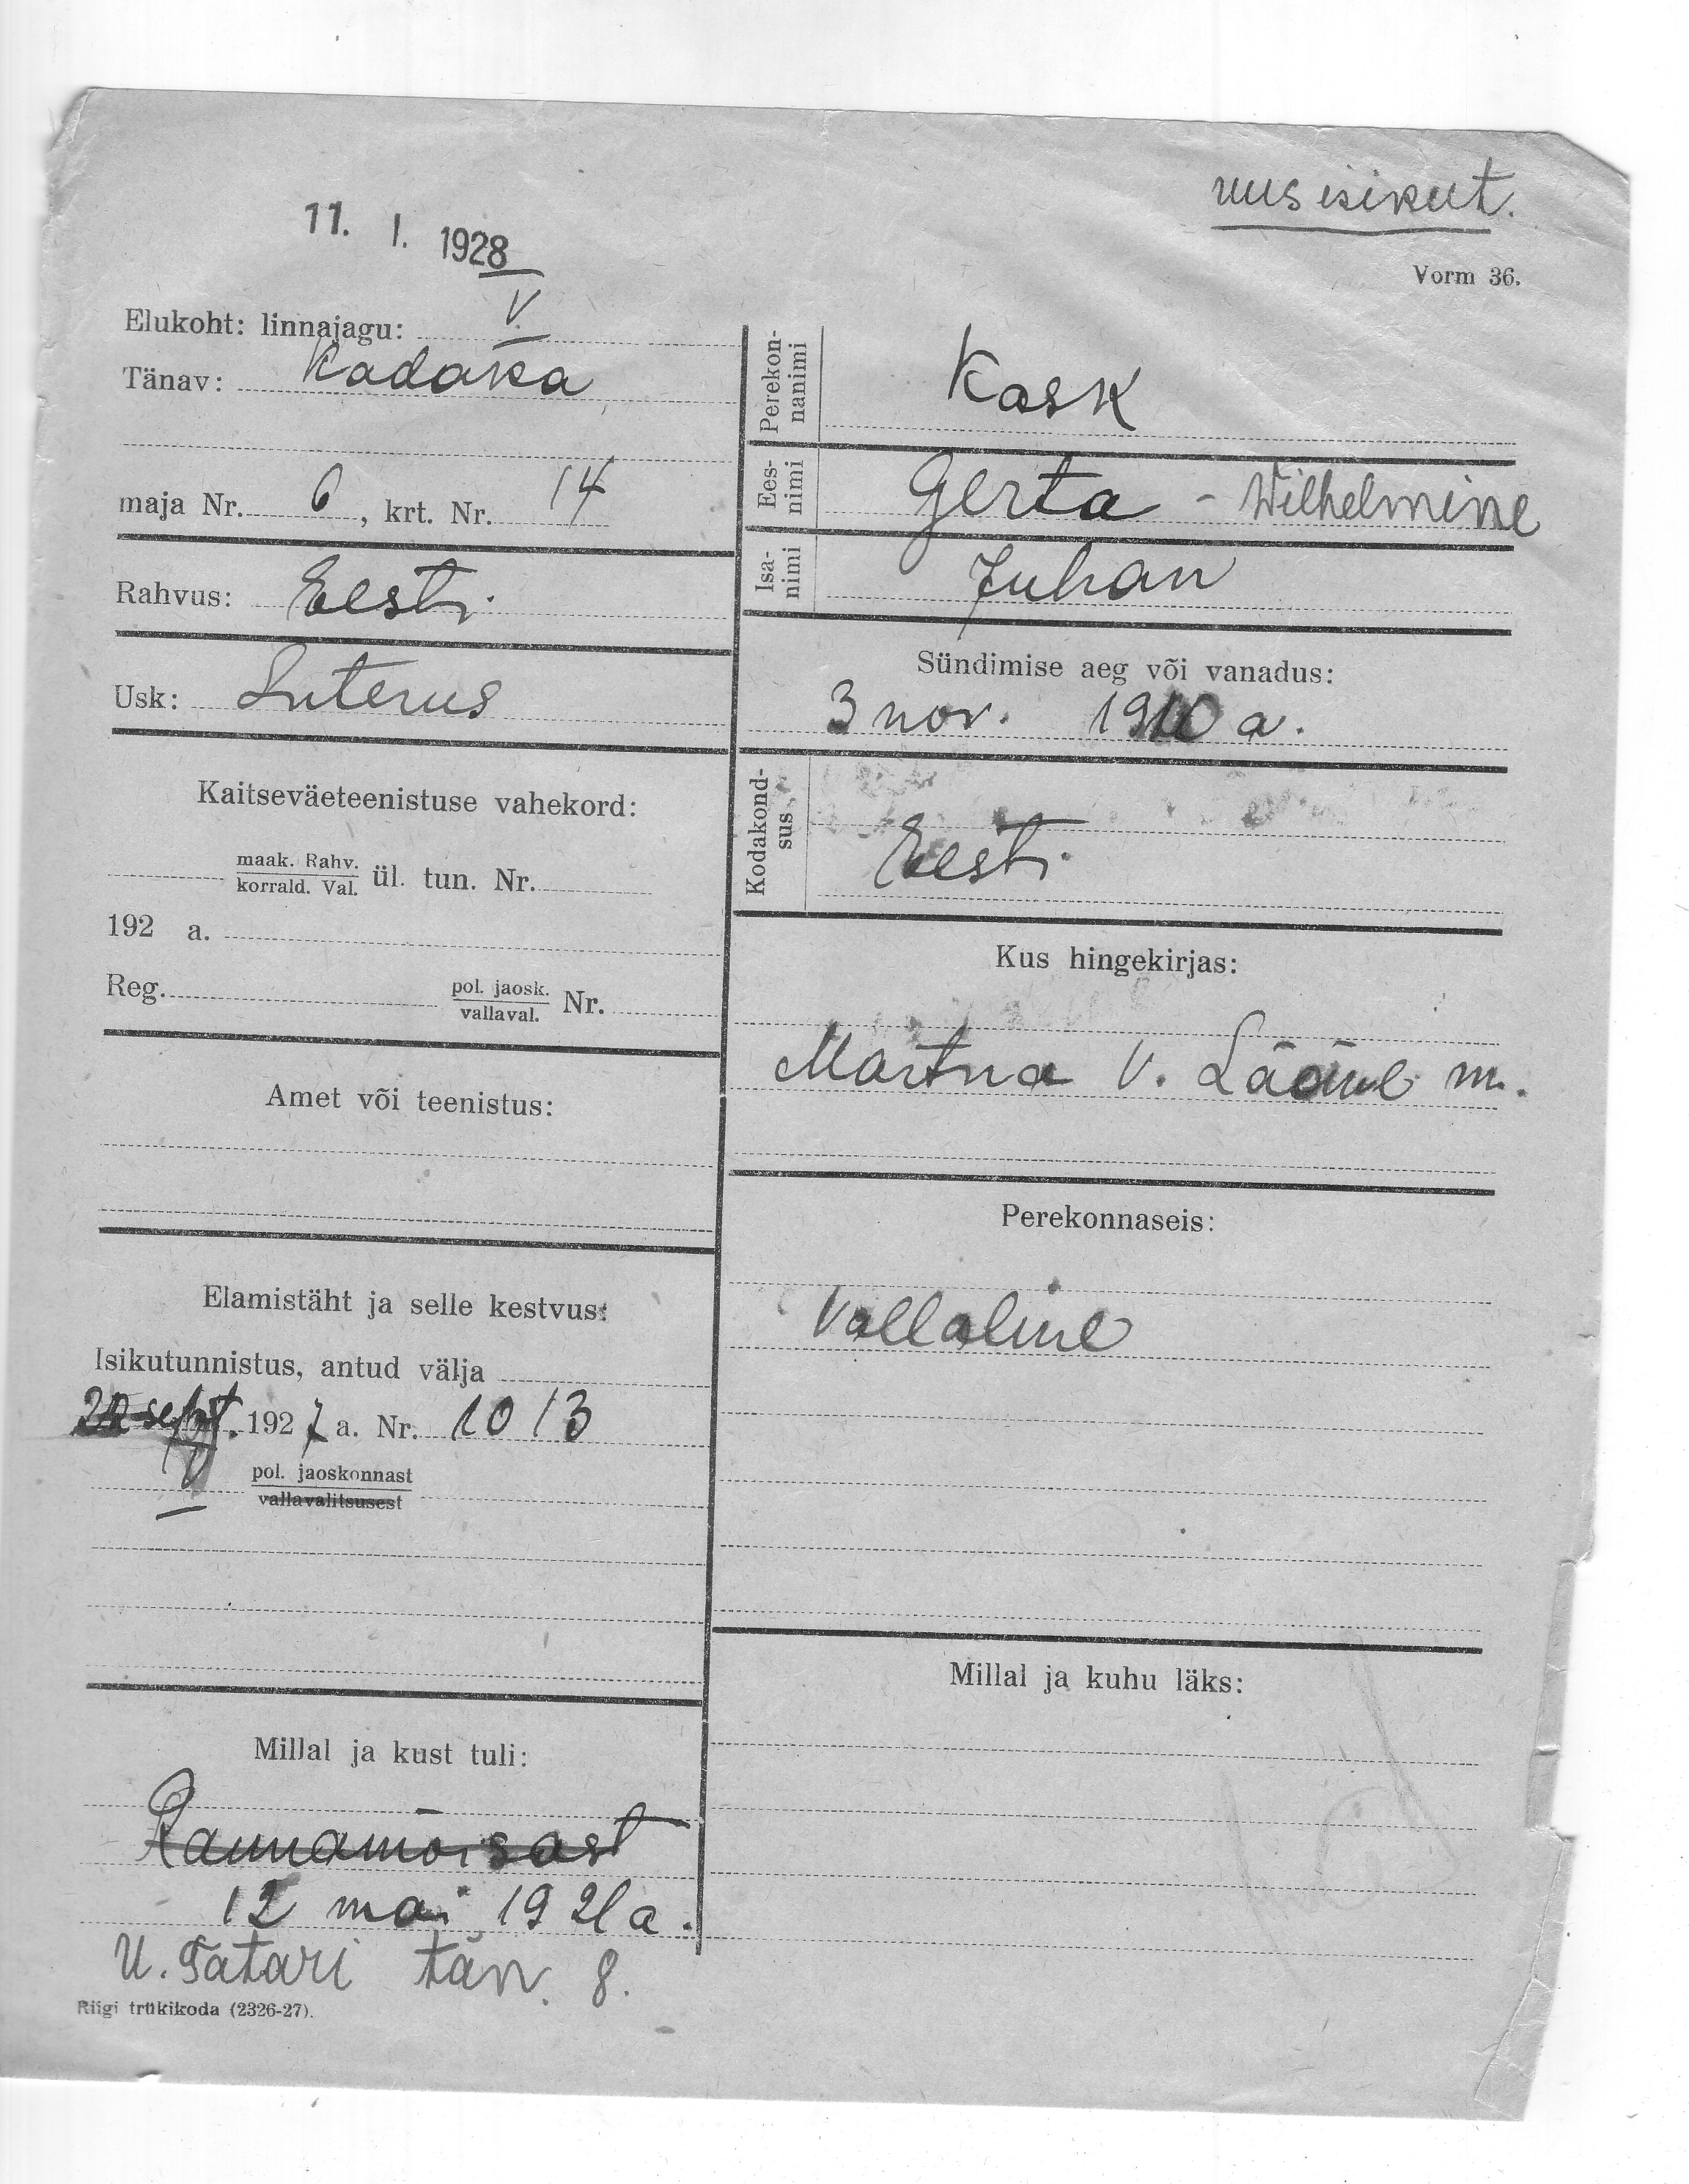 uus isikut.
11. I. 1928
Vorm 36.
Elukoht: linnajagu: V.
Tänav: Kadaka
maja Nr. 6, krt. Nr. 14
Rahvus: Eesti.
Usk: Luterus
Kaitseväeteenistuse vahekord:
maak. Rahv.
korrald. Val. ül. tun. Nr.
192 a.
Reg. pol. jaosk.
vallaval. Nr.
Amet või teenistus:
Elamistäht ja selle kestvus:
Isikutunnistus, antud välja
sept. 1927 a. Nr. 1013
V pol. jaoskonnast
vallavalitsusest
Millal ja kust tuli:
Rannamõisast
12 mai 1921 a.
U. Tatari tän. 8.
Riigi trükikoda (2326-27).
Perekon-
nanimi
Kask
Ees-
nimi
Gerta - Wilhelmine
Isa-
nimi
Juhan
Sündimise aeg või vanadus:
3 nov. 1910 a.
Kodakond-
sus
Eesti
Kus hingekirjas:
Martna v. Lääne m.
Perekonnaseis:
Vallaline
Millal ja kuhu läks: